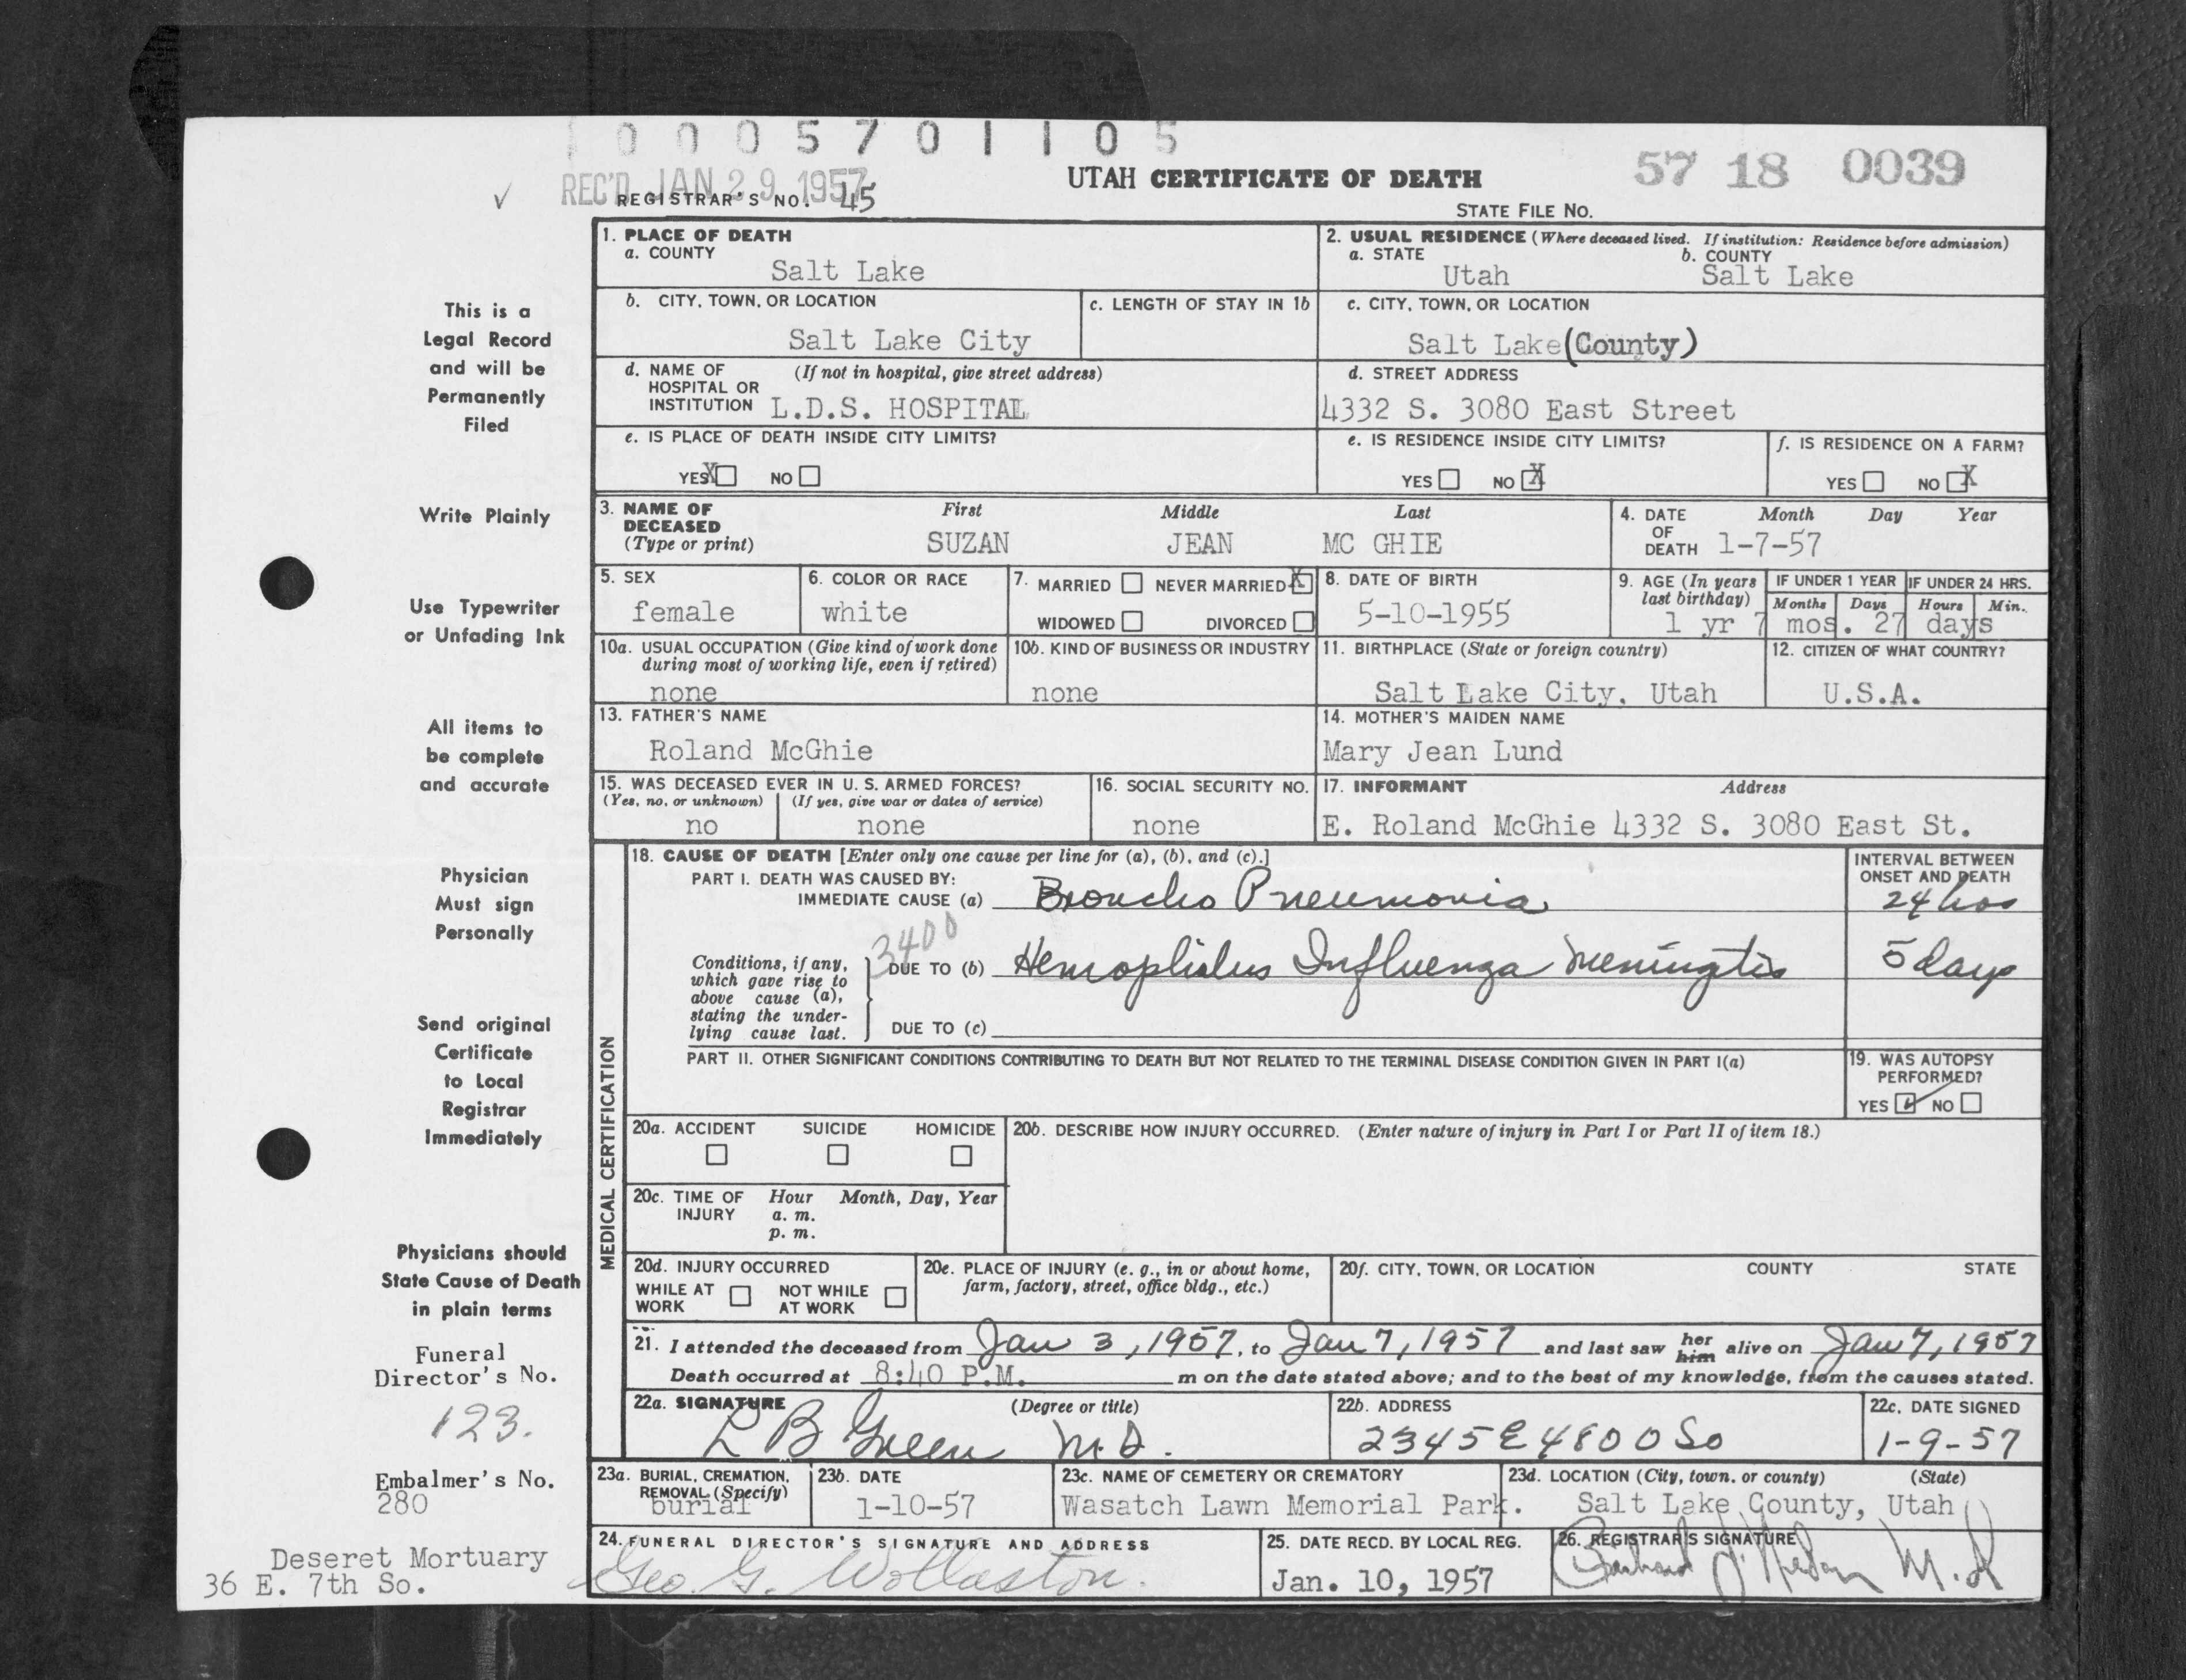 0 0 0 5 7 0 1 1 0 5
REC'D JAN 29 1957
UTAH CERTIFICATE OF DEATH
57 18 0039
REGISTRAR'S NO. 45
STATE FILE NO.
1. PLACE OF DEATH
a. COUNTY
Salt Lake
2. USUAL RESIDENCE (Where deceased lived. If institution: Residence before admission)
a. STATE b. COUNTY
Utah Salt Lake
b. CITY, TOWN, OR LOCATION
Salt Lake City
c. LENGTH OF STAY IN 1b
c. CITY, TOWN, OR LOCATION
Salt Lake (County)
d. NAME OF HOSPITAL OR INSTITUTION (If not in hospital, give street address)
L.D.S. HOSPITAL
d. STREET ADDRESS
4332 S. 3080 East Street
e. IS PLACE OF DEATH INSIDE CITY LIMITS?
YES X NO
e. IS RESIDENCE INSIDE CITY LIMITS?
YES NO X
f. IS RESIDENCE ON A FARM?
YES NO X
3. NAME OF DECEASED (Type or print)
First Middle Last
SUZAN JEAN MC GHIE
4. DATE OF DEATH Month Day Year
1-7-57
5. SEX
female
6. COLOR OR RACE
white
7. MARRIED NEVER MARRIED X
WIDOWED DIVORCED
8. DATE OF BIRTH
5-10-1955
9. AGE (In years last birthday) IF UNDER 1 YEAR IF UNDER 24 HRS.
Months Days Hours Min.
1 yr 7 mos. 27 days
10a. USUAL OCCUPATION (Give kind of work done during most of working life, even if retired)
none
10b. KIND OF BUSINESS OR INDUSTRY
none
11. BIRTHPLACE (State or foreign country)
Salt Lake City, Utah
12. CITIZEN OF WHAT COUNTRY?
U.S.A.
13. FATHER'S NAME
Roland McGhie
14. MOTHER'S MAIDEN NAME
Mary Jean Lund
15. WAS DECEASED EVER IN U. S. ARMED FORCES?
(Yes, no, or unknown) (If yes, give war or dates of service)
no none
16. SOCIAL SECURITY NO.
none
17. INFORMANT Address
E. Roland McGhie 4332 S. 3080 East St.
MEDICAL CERTIFICATION
18. CAUSE OF DEATH [Enter only one cause per line for (a), (b), and (c).]
PART I. DEATH WAS CAUSED BY:
IMMEDIATE CAUSE (a) Broncho Pneumonia
INTERVAL BETWEEN ONSET AND DEATH
24 hrs
3400
Conditions, if any, which gave rise to above cause (a), stating the underlying cause last.
DUE TO (b) Hemophilus Influenza Meningtis
5 days
DUE TO (c)
PART II. OTHER SIGNIFICANT CONDITIONS CONTRIBUTING TO DEATH BUT NOT RELATED TO THE TERMINAL DISEASE CONDITION GIVEN IN PART I(a)
19. WAS AUTOPSY PERFORMED?
YES ✓ NO
20a. ACCIDENT SUICIDE HOMICIDE
20b. DESCRIBE HOW INJURY OCCURRED. (Enter nature of injury in Part I or Part II of item 18.)
20c. TIME OF INJURY Hour Month, Day, Year
a. m.
p. m.
20d. INJURY OCCURRED
WHILE AT WORK NOT WHILE AT WORK
20e. PLACE OF INJURY (e. g., in or about home, farm, factory, street, office bldg., etc.)
20f. CITY, TOWN, OR LOCATION COUNTY STATE
21. I attended the deceased from Jan 3, 1957, to Jan 7, 1957 and last saw her him alive on Jan 7, 1957
Death occurred at 8:40 P.M. m on the date stated above; and to the best of my knowledge, from the causes stated.
22a. SIGNATURE (Degree or title)
L B Green M.D.
22b. ADDRESS
2345 E 4800 So
22c. DATE SIGNED
1-9-57
23a. BURIAL, CREMATION, REMOVAL (Specify)
burial
23b. DATE
1-10-57
23c. NAME OF CEMETERY OR CREMATORY
Wasatch Lawn Memorial Park.
23d. LOCATION (City, town, or county) (State)
Salt Lake County, Utah
24. FUNERAL DIRECTOR'S SIGNATURE AND ADDRESS
Geo. G. Wollaston.
25. DATE RECD. BY LOCAL REG.
Jan. 10, 1957
26. REGISTRAR'S SIGNATURE
M.D
This is a
Legal Record
and will be
Permanently
Filed
Write Plainly
Use Typewriter
or Unfading Ink
All items to
be complete
and accurate
Physician
Must sign
Personally
Send original
Certificate
to Local
Registrar
Immediately
Physicians should
State Cause of Death
in plain terms
Funeral
Director's No.
123.
Embalmer's No.
280
Deseret Mortuary
36 E. 7th So.